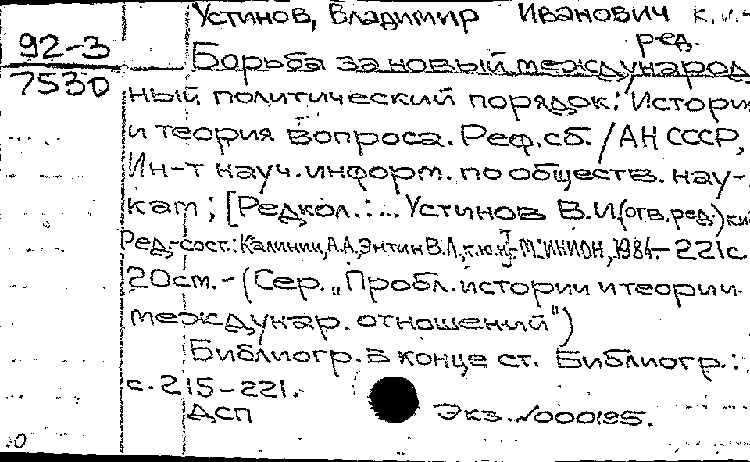 Устинов, Владимир Иванович к.и.-
ред.
92-3
7530
Борьба за новый международ
ный политический порядок: Истори
и теория вопроса. Реф.сб. / АН СССР,
Ин-т науч.информ. по обществ. нау-
кам; [Редкол.:... Устинов В.И.(отв.ред.)
Ред.-сост.: Калинин,А.А.,Энтин В.Л., -М.:ИНИОН, 1984.- 221с.
20см.-(Сер. „Пробл.истории и теории
междунар. отношений")
Библиогр. в конце ст. Библиогр.:
с. 215-221.
ДСП Экз.№000185.